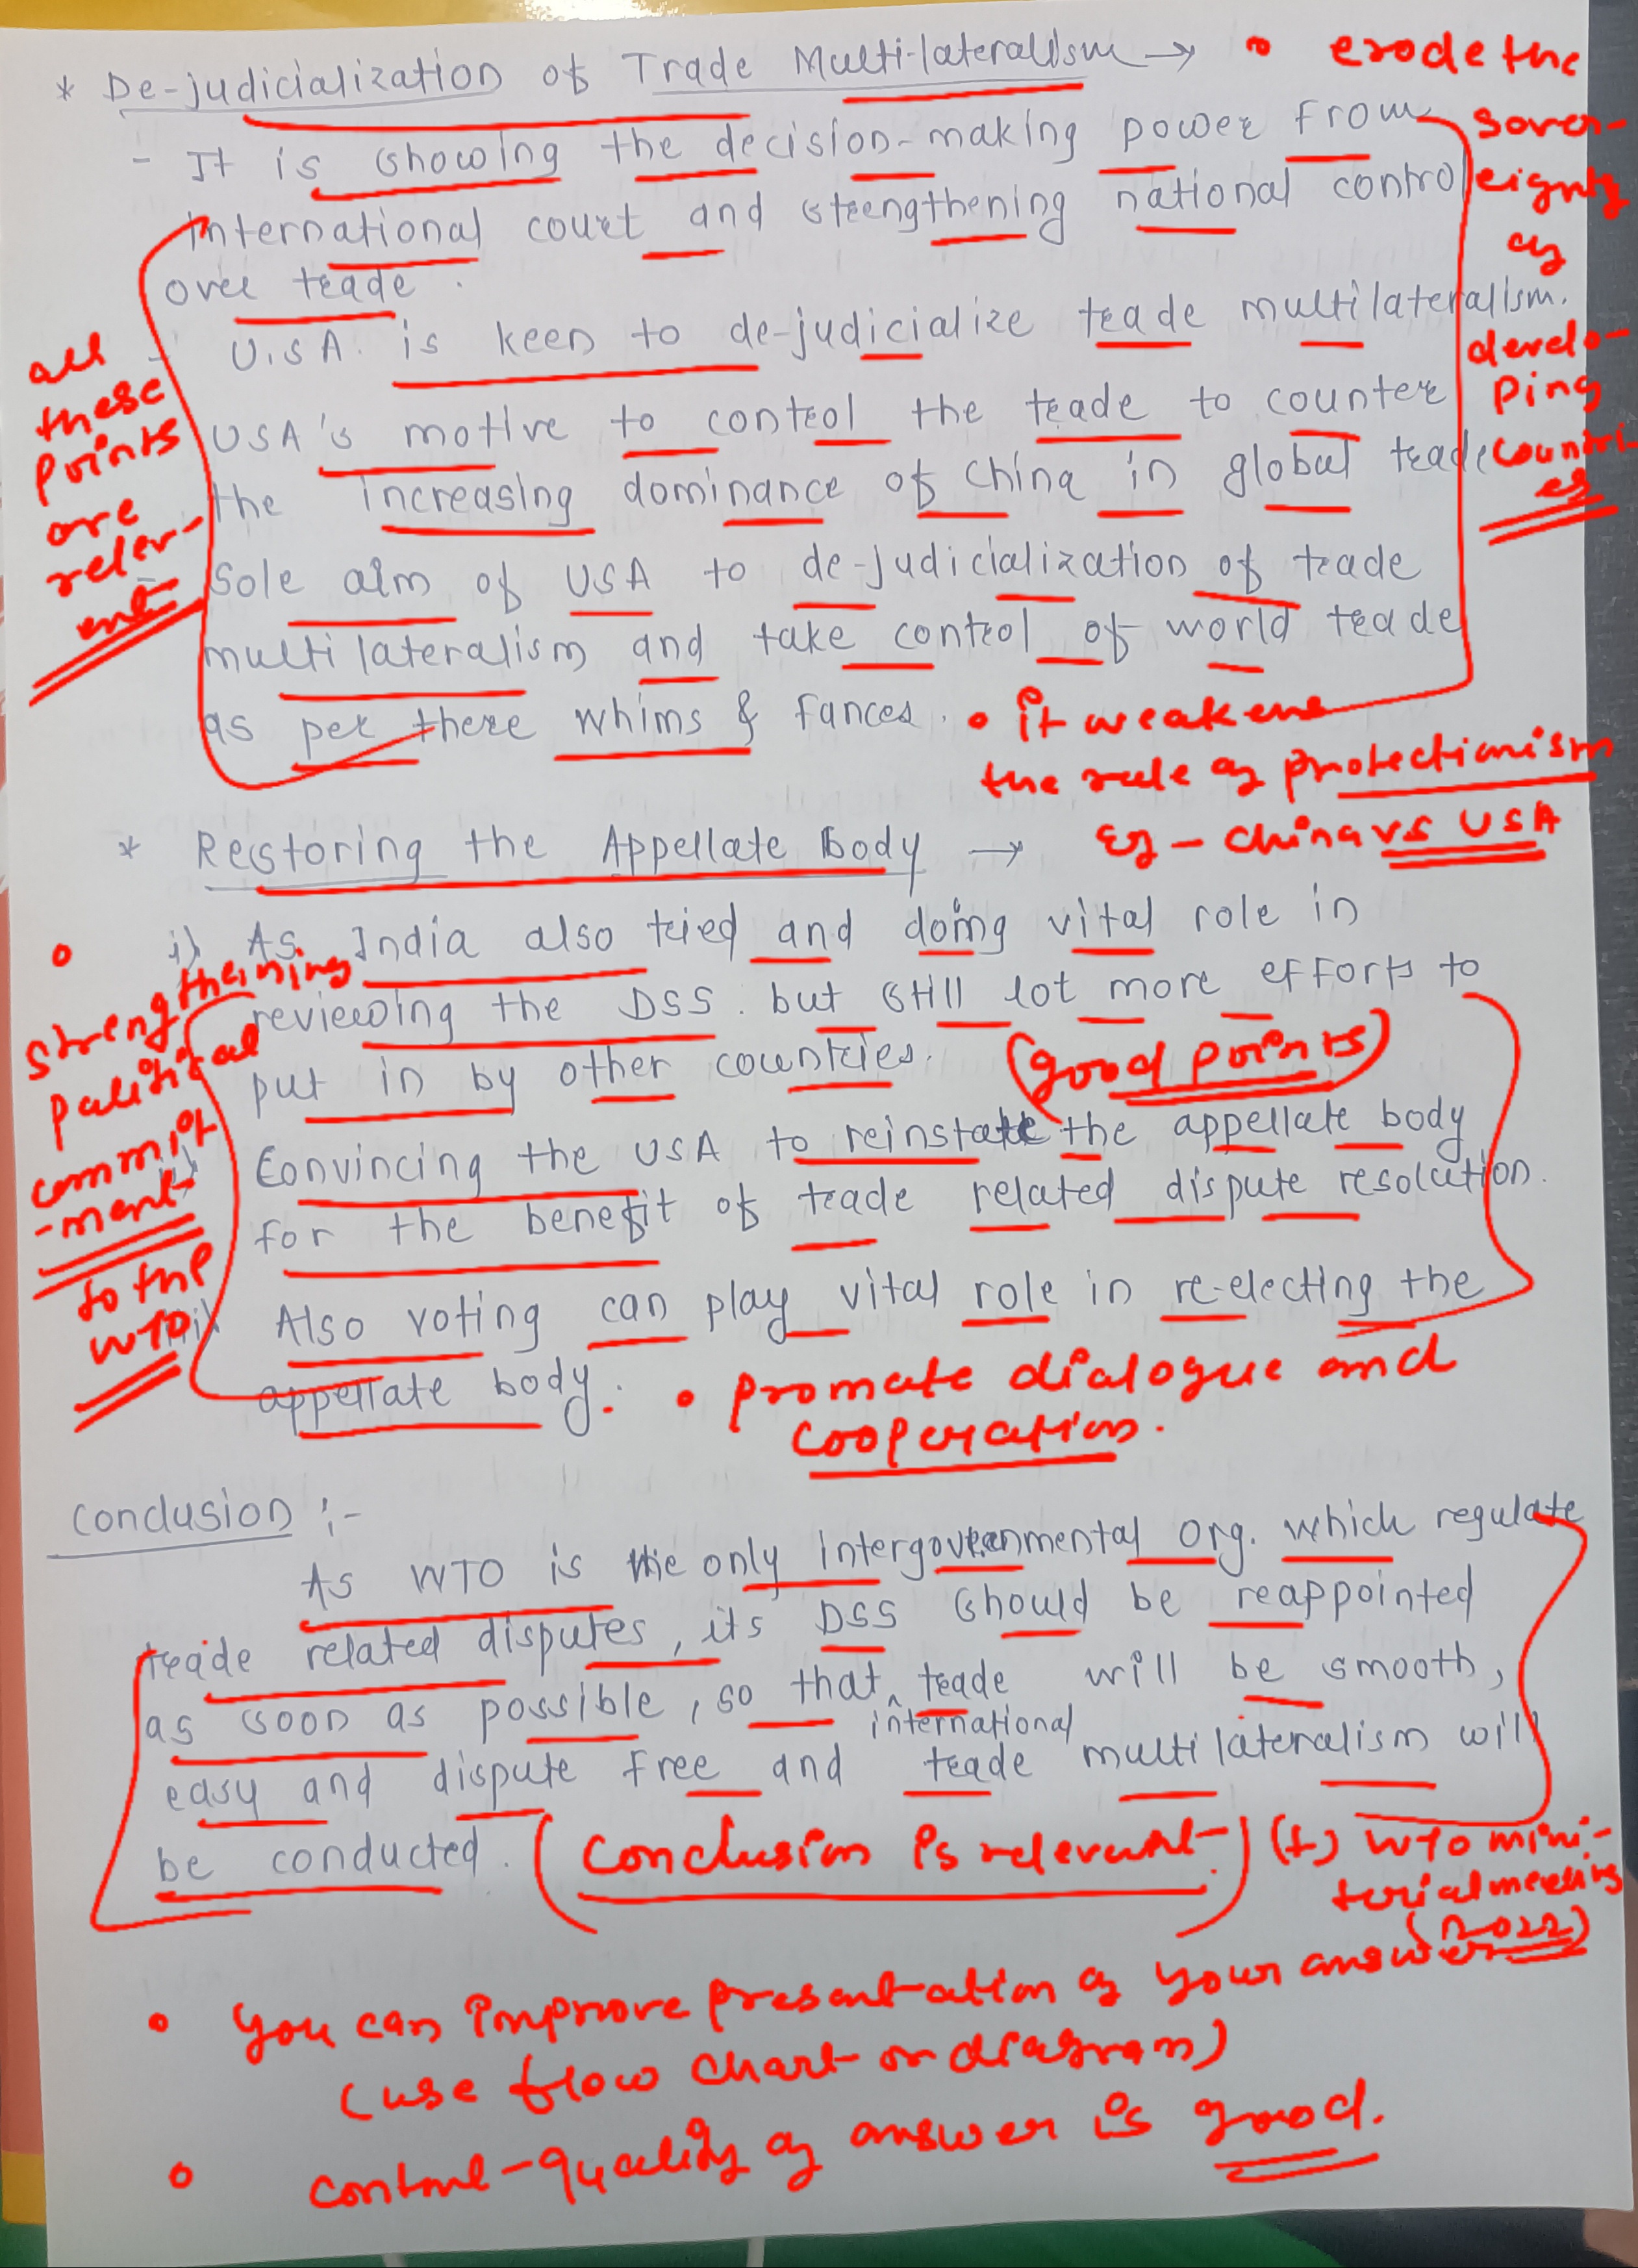 * De-judicialization of Trade Multi-lateralism → • erode the
sover-
eignty
of
develo-
ping
countri-
es
- It is showing the decision-making power from
international court and strengthening national control
over trade.
- U.S.A. is keen to de-judicialize trade multilateralism.
USA's motive to control the trade to counter
the increasing dominance of China in global trade
- Sole aim of USA to de-judicialization of trade
multilateralism and take control of world trade
as per there whims & fances.
all
these
points
are
relev-
ent
• it weakens
the rule of protectionism
Eg - China vs USA
* Restoring the Appellate Body →
i) As India also tried and doing vital role in
reviewing the DSS. but still lot more efforts to
put in by other countries.
(good points)
ii) Convincing the USA to reinstate the appellate body
for the benefit of trade related dispute resolution.
iii) Also voting can play vital role in re-electing the
appellate body.
• strengthening
political
commit
-ment
to the
WTO
• promote dialogue and
cooperation.
Conclusion :-
As WTO is the only intergovernmental org. which regulate
trade related disputes, its DSS should be reappointed
as soon as possible, so that ^ international trade will be smooth,
easy and dispute free and trade multilateralism will
be conducted.
(Conclusion is relevant) (+) WTO mini-
terial meeting
(2022)
• You can improve presentation of your answer
(use flow chart or diagram)
• content-quality of answer is good.